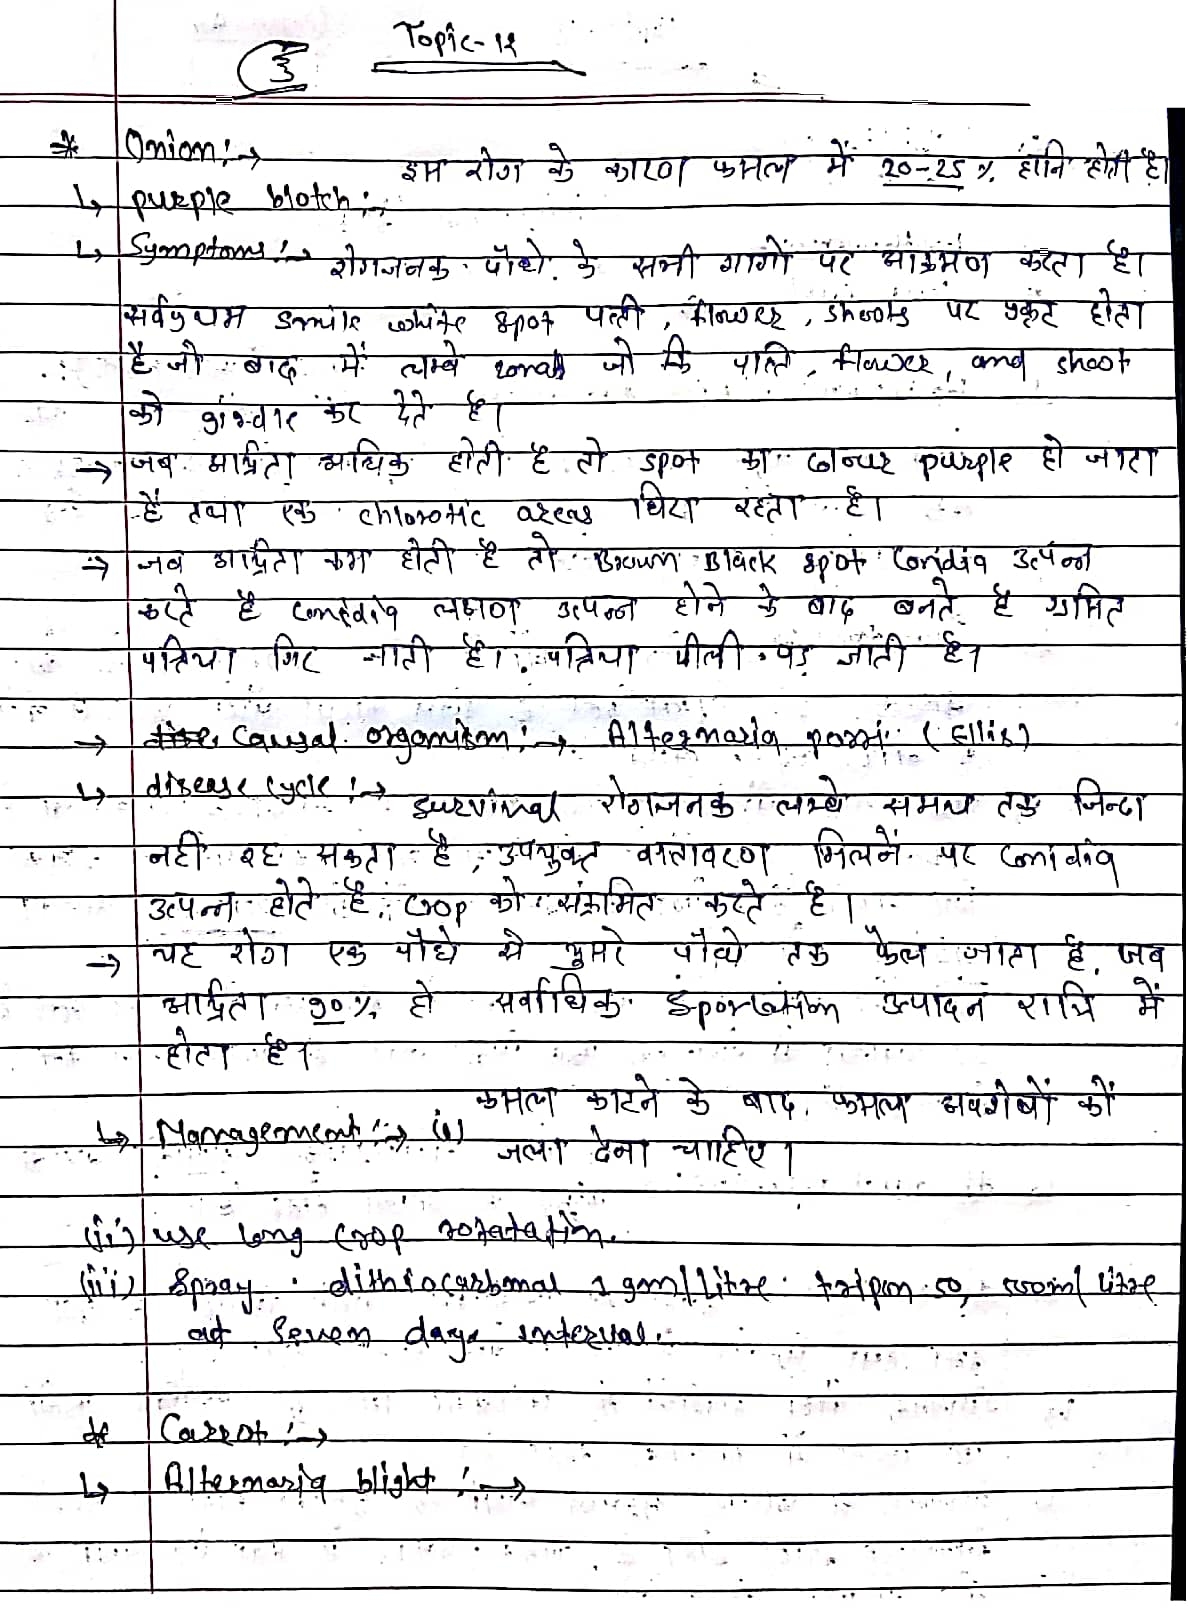 Topic-12
* Onion:→
इस रोग के कारण फसल में 20-25 % हानि होती है।
↳ purple blotch:
↳ Symptoms:→ रोगजनक पौधे के सभी भागों पर आक्रमण करता है।
सर्वप्रथम white spot पत्ती, flower, shoots पर प्रकट होता
है जो बाद में लम्बे zonab जो कि पत्ति, flower, and shoot
को कर देते है।
→ जब आर्द्रता अधिक होती है तो spot का colour purple हो जाता
है तथा एक chlorotic areas घिरा रहता है।
→ जब आर्द्रता कम होती है तो Brown Black spot conidia उत्पन्न
करते है conidia लक्षण उत्पन्न होने के बाद बनते है ग्रसित
पत्तिया गिर जाती है। पत्तिया पीली पड़ जाती है।
→ Causal organism:→ Alternaria porri (Ellis)
↳ disease cycle:→ survival रोगजनक लम्बे समय तक जिन्दा
नही रह सकता है, उपयुक्त वातावरण मिलने पर conidia
उत्पन्न होते है, crop को संक्रमित करते है।
→ यह रोग एक पौधे से दुसरे पौधे तक फैल जाता है, जब
आर्द्रता 90% हो सर्वाधिक उत्पादन रात्रि में
होता है।
फसल काटने के बाद, फसल अवशेषों कों
↳ Management:→ (i) जला देना चाहिए।
(ii) use long crop rotatation.
(iii) Spray dithiocarbmal 1 gm/litre 50, 500ml litre
at seven days interval.
* Carrot:→
↳ Alternaria blight:→